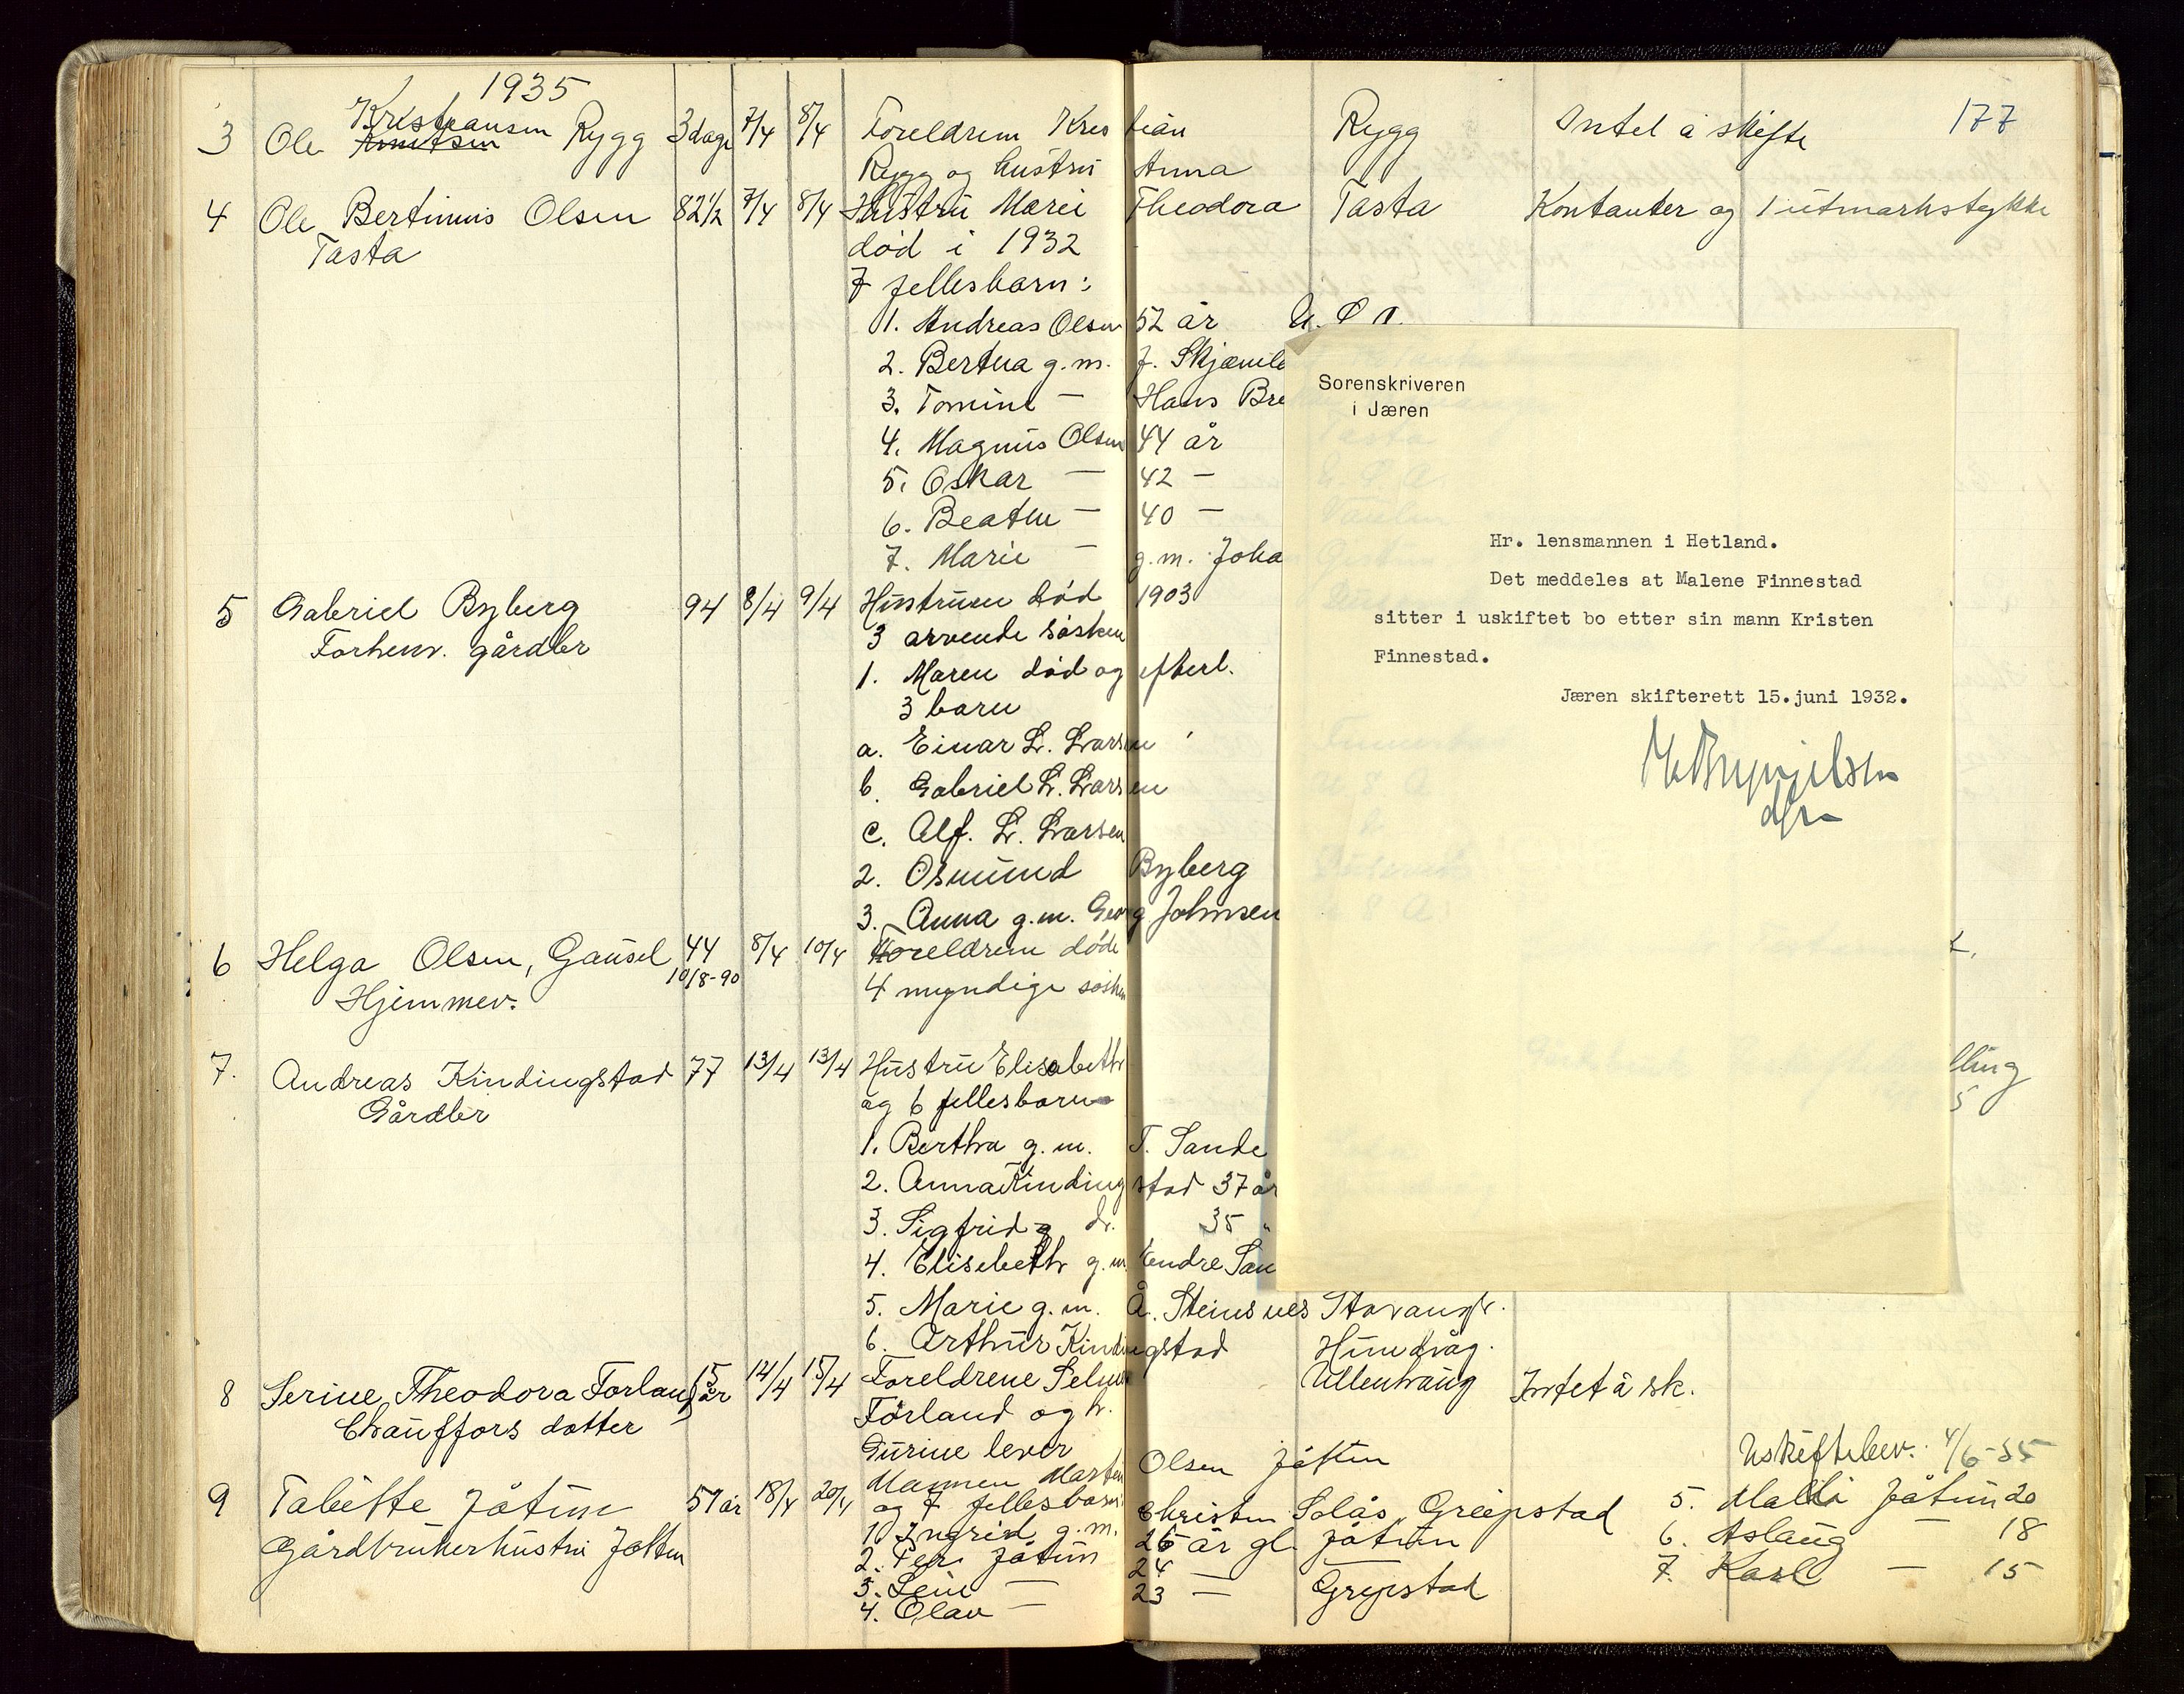 1935
177
3 Ole Kristiansen Rygg 3 dage 7/4 8/4 Foreldrene Kristian Rygg Intet å skifte
Knutsen
Rygg og hustru Anna
4 Ole Bertinius Olsen 82½ 7/4 8/4 Hustru Marie Theodora Tasta Kontanter og 1 utmarkstykke
Tasta død i 1932
7 fellesbarn:
1. Andreas Olsen 52 år U. S. A.
2. Bertha g.m. J. Skjæmle
3. Tomine — Hans Bre
4. Magnus Olsen 44 år
5. Oskar — 42 —
6. Beathe — 40 —
7. Marie — g.m. Joha
5 Gabriel Byberg 94 8/4 9/4 Hustruen død 1903
Forhenv. gårdbr 3 arvende søsken
1. Maren død og efterl.
3 barn
a. Einar L. Larsen
b. Gabriel L. Larsen
c. Alf. L. Larsen
2. Osmund Byberg
3. Anna g.m. Georg Johnsen
6 Helga Olsen, Gausel 44 8/4 10/4 Foreldrene døde
10/8-90
Hjemmev. 4 myndige søsken
7. Andreas Kindingstad 77 13/4 13/4 Hustru Elisabeth
Gårdbr og 6 fellesbarn
1. Bertha g.m. T. Sande
2. Anna Kindingstad 37 år
3. Sigfrid dr. 35 "
4. Elisebeth g.m. Endre San
5. Marie g.m. A. Steinsnes Stavanger.
6. Arthur Kindingstad Hundvåg.
8 Serine Theodora Forland 15 år 14/4 15/4 Foreldrene Selmer Ullenhaug Intet å sk.
Chaufførs datter Førland og h.
Gurine lever
9 Tabitte Jåtun 51 år 18/4 20/4 Mannen Martin Olsen Jåtten Uskiftebev. 4/6-35
Gårdbrukerhustru Jåtten og 7 fellesbarn
1. Ingrid g.m. Christen Solås Greipstad
2. Per Jåtun 26 år gl. Jåtun
3. Leiv — 24 —
4. Olav — 23 — Grepstad
5. Malli Jåtun 20
6. Aslaug — 18
7. Karl — 15
Sorenskriveren
i Jæren
Hr. lensmannen i Hetland.
Det meddeles at Malene Finnestad
sitter i uskiftet bo etter sin mann Kristen
Finnestad.
Jæren skifterett 15.juni 1932.
lling